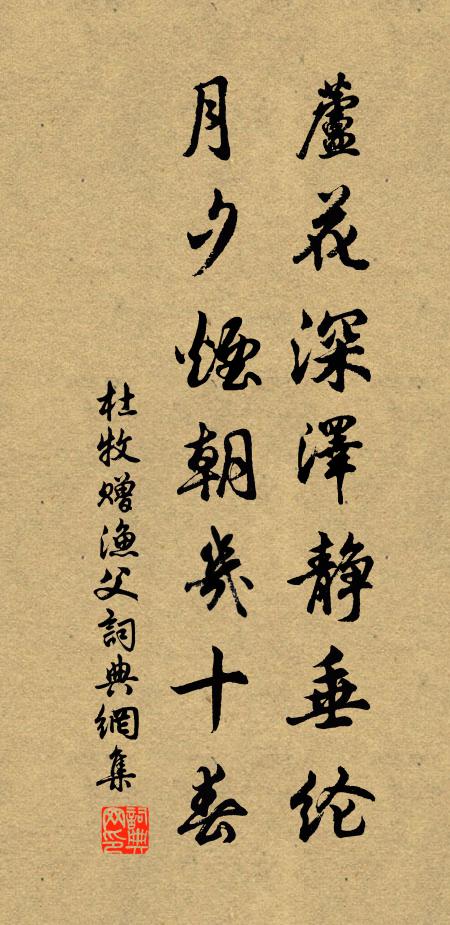 蘆花深澤静垂纶
月夕煙朝幾十春
杜牧赠漁父詞典網集
詞典网印